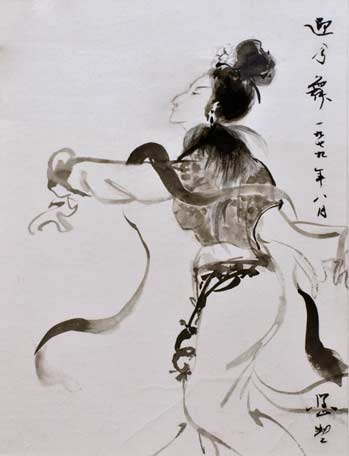 迎月舞 一九七九年八月